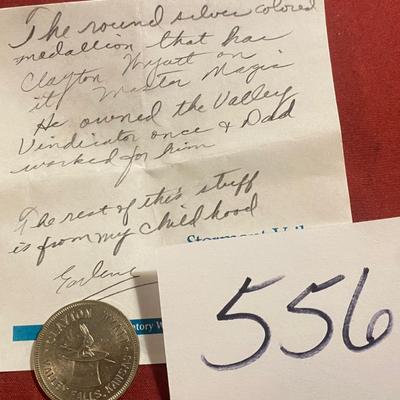 The round silver colored
medallion that has
Clayton Wyatt on
it Master Magic
He owned the Valley
Vindicator once & Dad
worked for him
The rest of this stuff
is from my childhood
Earlene
556
CLAYTON WYATT
VALLEY FALLS, KANSAS